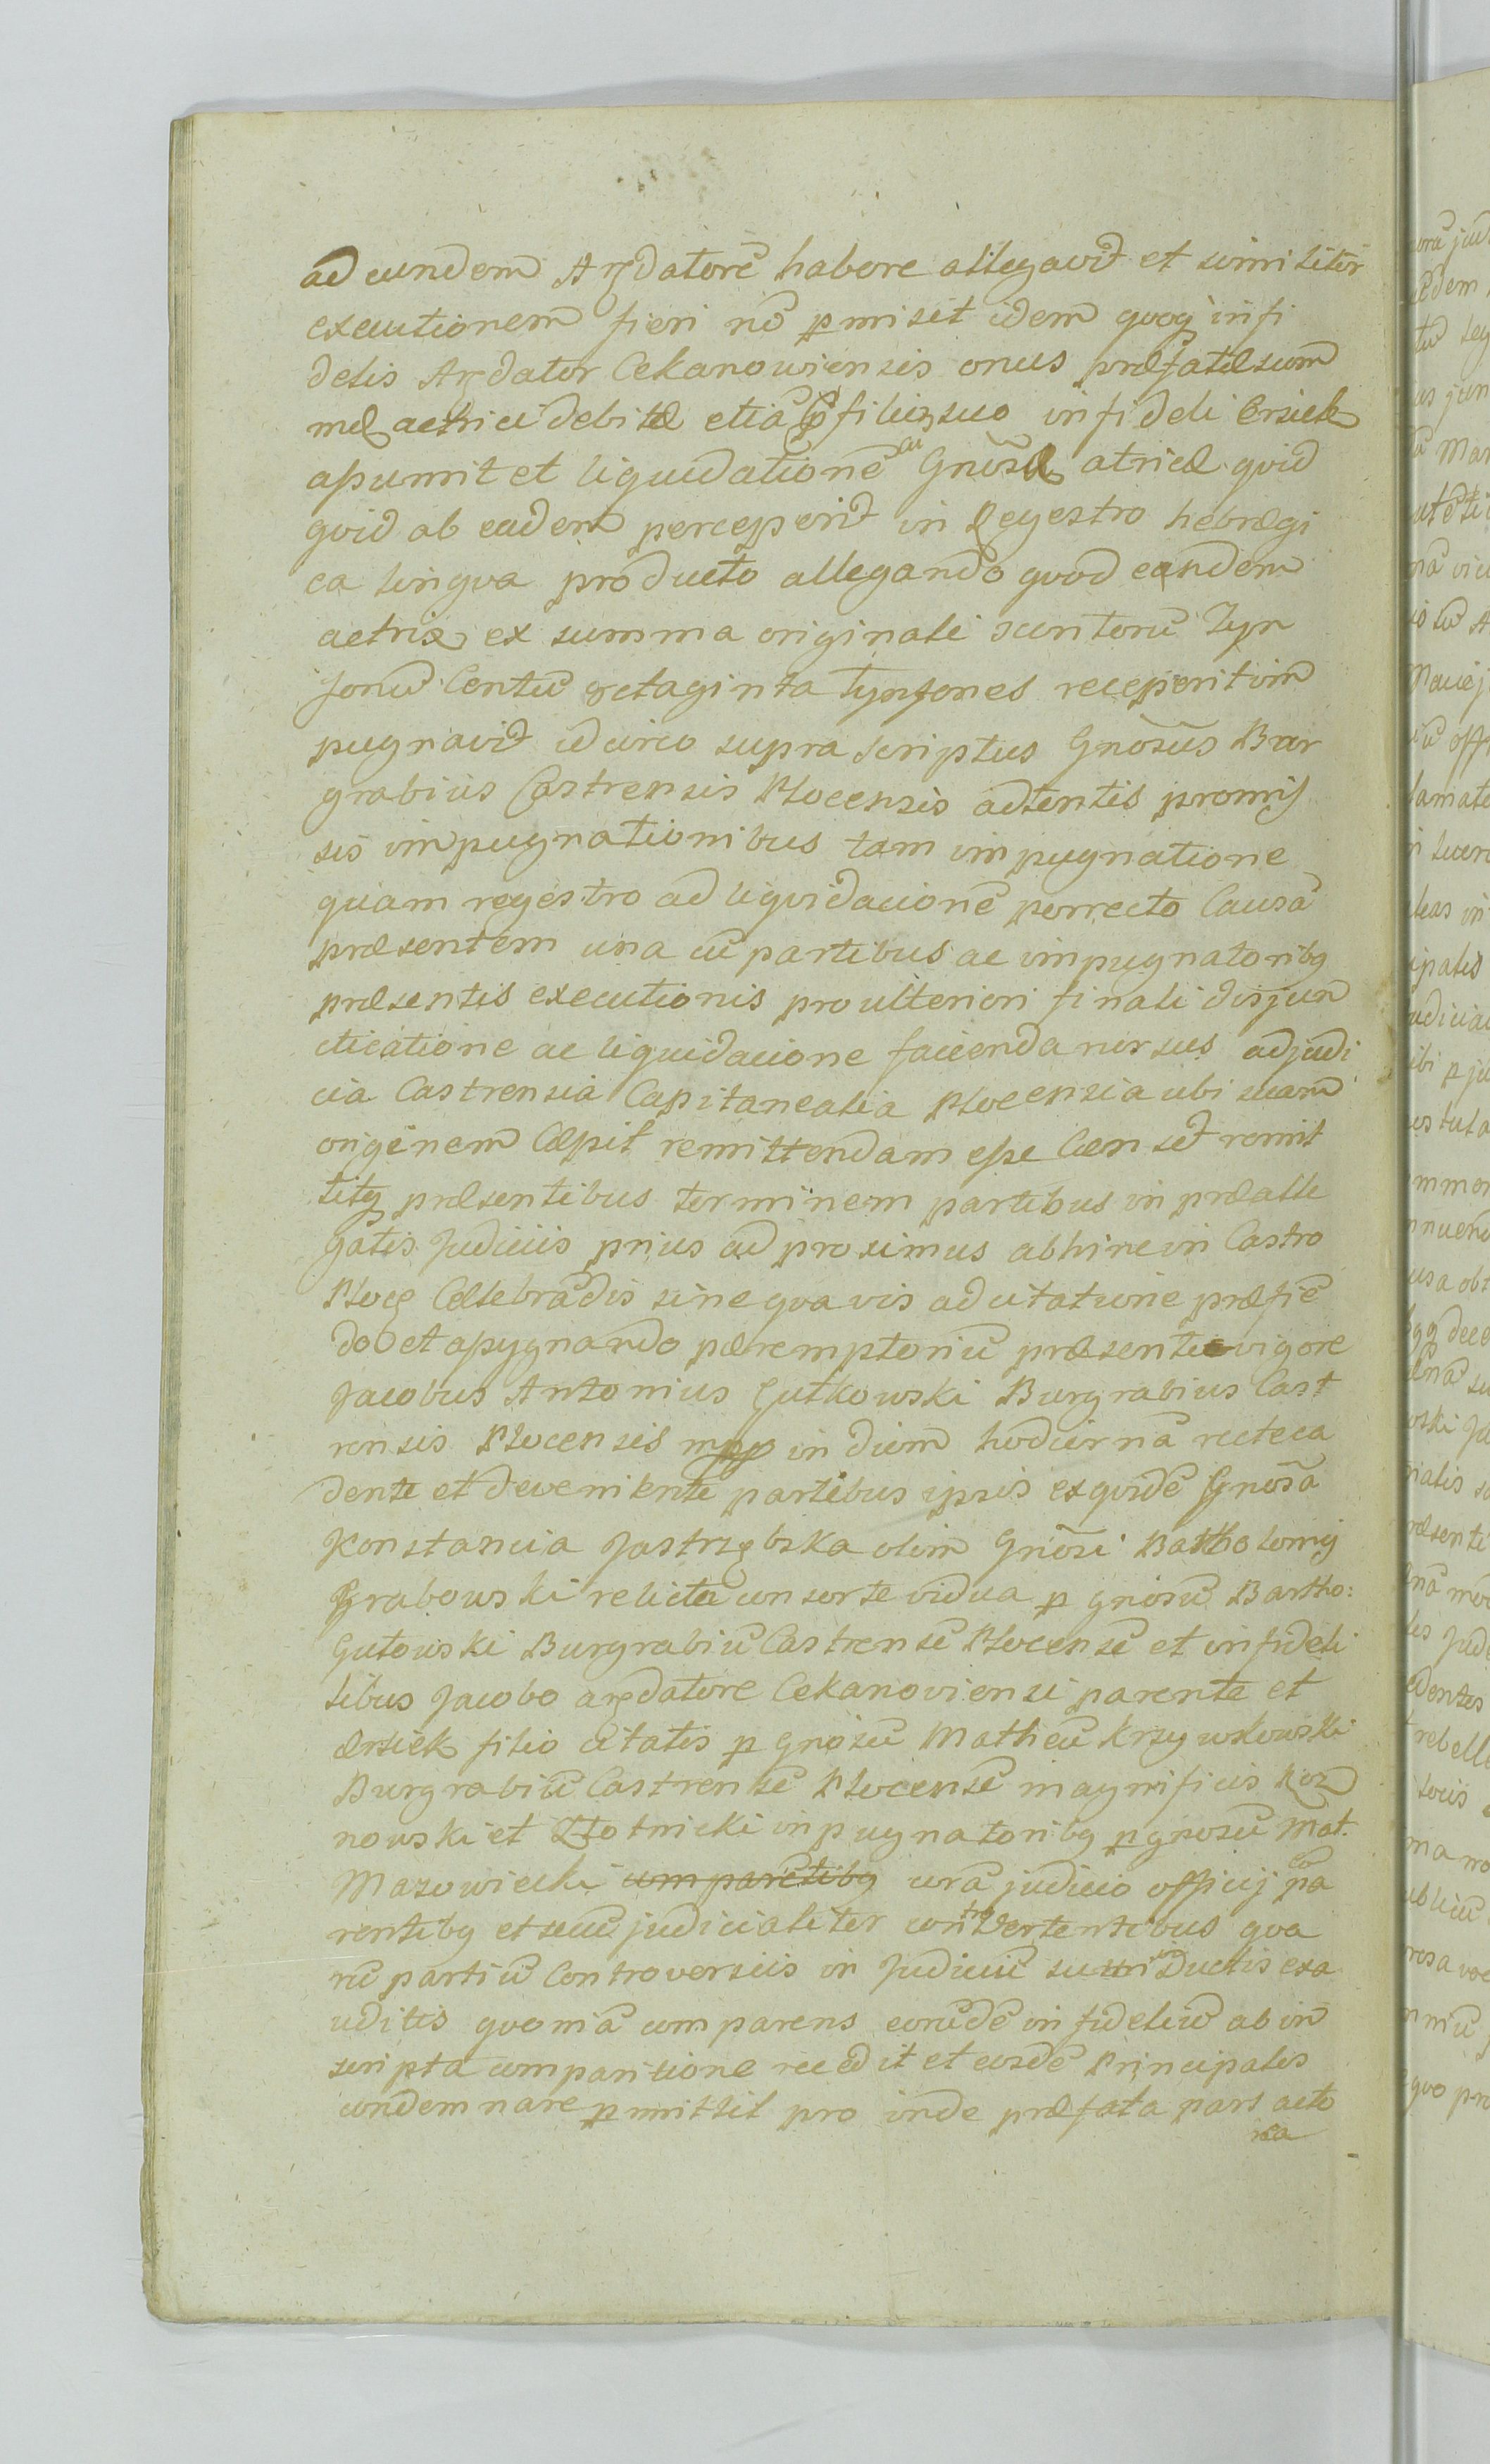 ad eundem Arędatorē habere allegavit et similiter
executionem fieri nō p̱misit idem qvoq̨ infi
delis Arędator Cekanowiensis onus præfatæ sum
mæ actrici debitæ etiā filio suo infideli Ersiek
assumit et liquidationē cū Gnōsæ atricæ qvid
qvid ab eadem perceperit in Regestro hebragi
ca lingva producto allegando qvod eandem
actrix ex summa originali scuntorū Tyn
fonū Centū octaginta Tynfones receperit im
pugnavit idcirco supra scriptus Gnōsus Bur
grabius Castrensis Plocensis adtentis promis
sis impugnationibus tam impugnatione
quam regestro ad liqvidacionē porrecto Causā
præsentem una cū partibus ac impugnatoribg
præsentis executionis pro ulteriori finali disjun
dicatione ac liquidacione facienda rursus ad judi
cia Castrensia Capitanealia Plocensia ubi suam
originem cæpit remittendam esse Censet remit
titq̨ præsentibus terminem partibus in prealle
gatis Judiciis prius ad proximus abhinc in Castro
Ploce Celebrādis sine qva vis adcitatione præfiē
do et assygnando pæremptoriū præsenti vigore
Jacobus Antonius Gutkowski Burgrabius Cast
rensis Plocensis mpp in diem hodiernā recte ca
dente et deveniente partibus ipsis exqvidē Gnōsa
Konstancia Jastrzębska olim Gnōsi Batholomij
Grabowski relicta consorte vidua p̱ gnōsū Bartho:
Gutowski Burgrabiū Castrensē Plocensē et infideli
libus Jacobo arędatore Cekanoviensi parente et
Ersiek filio citatis p̱ Gnōsū Matheū Krzywkowski
Burgrabiū Castrensē Plocensē magnificis Koz
nowski et Złotnicki inpugnatoribg p̱ gnosū Mat.
Mazowiecki comparētibg corā judicio officij compa
rentibg et secū judicialiter controvertentibus qva
rū partiū Controversiis in Judiciū inductis exa
uditis qvoniā comparens eorūdē infideliū ab in
scripta comparitione recedit et eosdē Principalis
condemnare p̱mittit pro inde præfata pars acto
rea